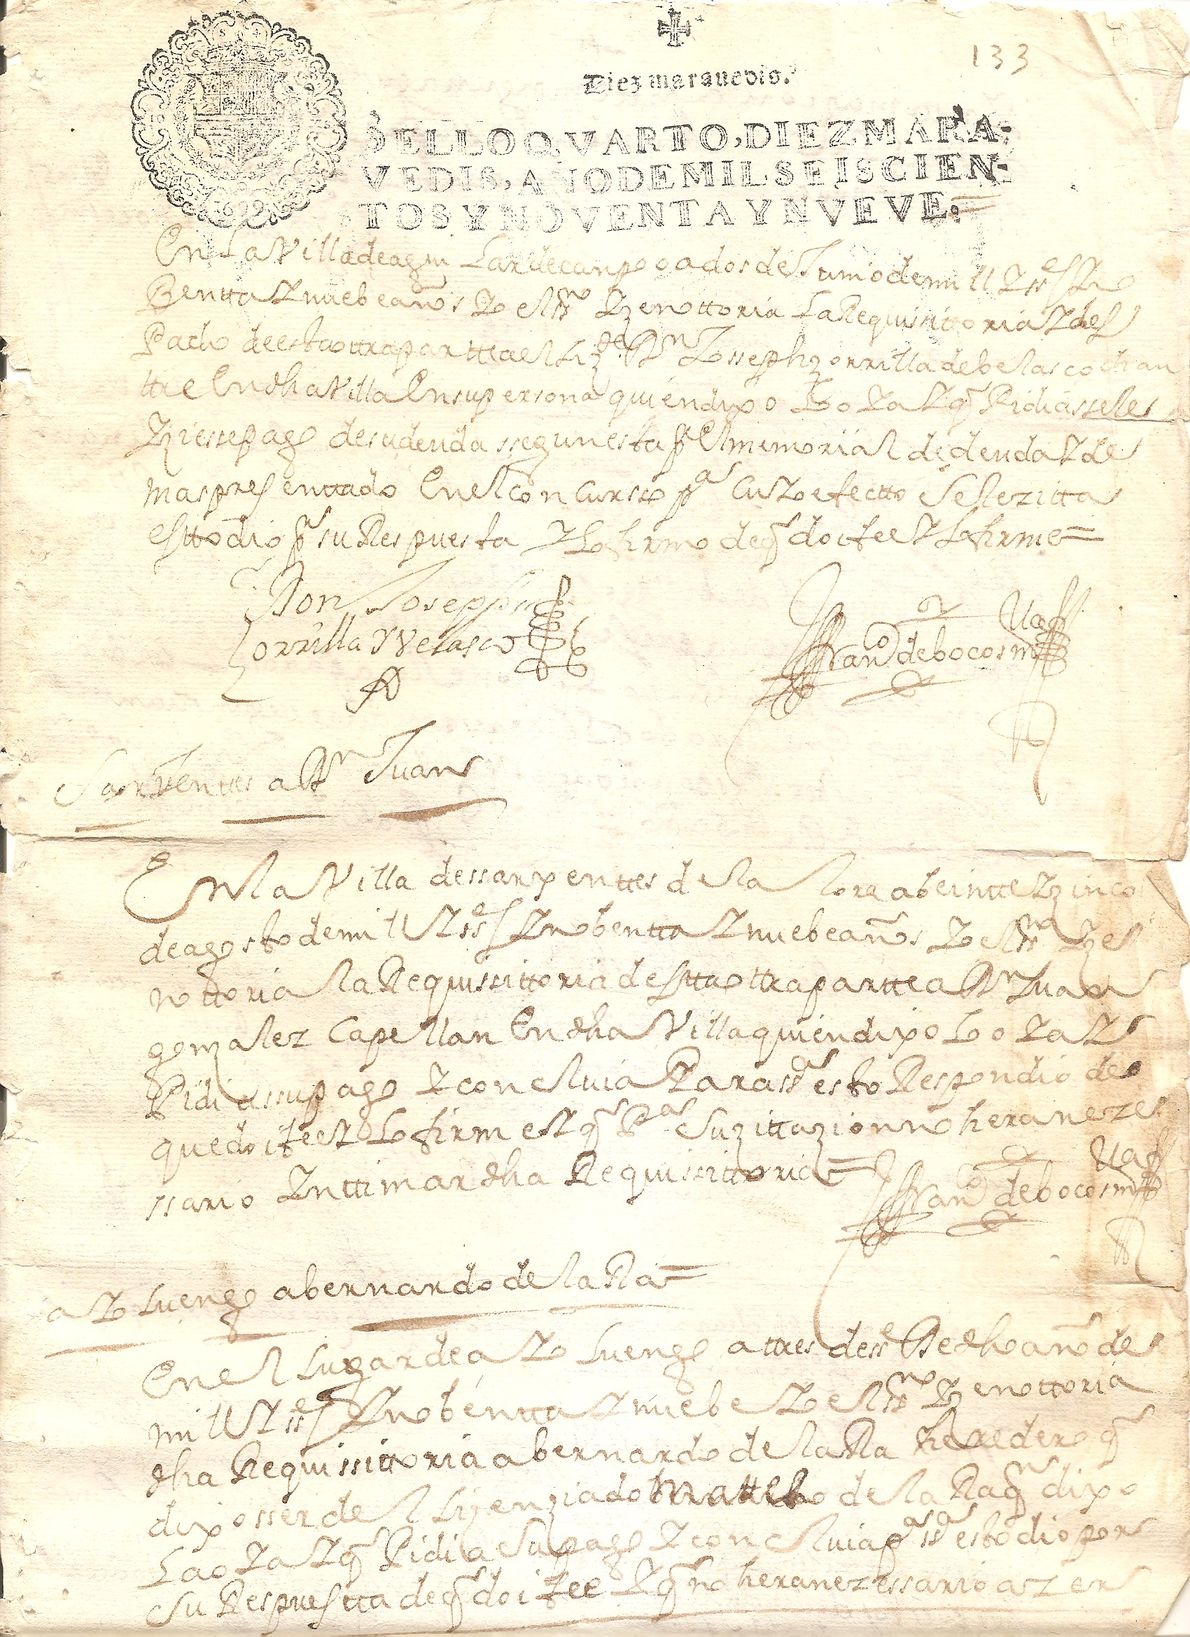 133
Diez marauedis.
SELLO QVARTO, DIEZ MARA-
VEDIS, AÑO DE MIL SEISCIEN-
TOS Y NOVENTA Y NVEVE.
En La Villa de aguilar de canpo o a dos de Junio de mill Y
Bentta Y nuebe años Yo el Yze nottoria La Requisittoria Y des
Pacho de esta ottra partte a el Liz.do Dn Joseph zorrilla de belasco
En dha Villa En su persona quien dixo Lo oia Y q Pidia se le
Yziesse pago de su deuda segun esta pr El memorial de deuda Y de
mas presenttado En el concurso pa cuio efectto se le zitta
estto dio pr su Respuesta Y Lo firmo de q doi fee Y Lo firme=
Don Joseph
Zorrilla Y Velasco
Franco de bocos
Sarxentes a Dn Juan
En la Villa de sarxenttes de la lora a beintte Y zinco
de agosto de mill Y ss Y nobentta Y nuebe años Yo el Yze
nottoria la Requisittoria de estta ottra partte a Dn Juan
gonzalez Capellan En dha Villa quien dixo Lo oia Y
Pidia su pago Y concluia Para esto Respondio de
que doi fee Y Lo firme Y q Pa su zittazion no hera neze
ssario Ynttimar dha Requisittoria=
Franco de bocos
aYo Luengo a bernardo de la Ra=
En el Lugar de aYo Luengo a ttres de se Bre dho año de
mill Y ss Y nobentta Y nuebe Yo el Yze nottoria
dha Requisittoria a bernardo de la Ra heredero q
dixo sser del Lizenziado Matteo de la Ra qn dixo
La oia Y q Pidia su pago Y concluia pa esto dio por
su Respuestta de q doi fee Y q no hera nezessario azer